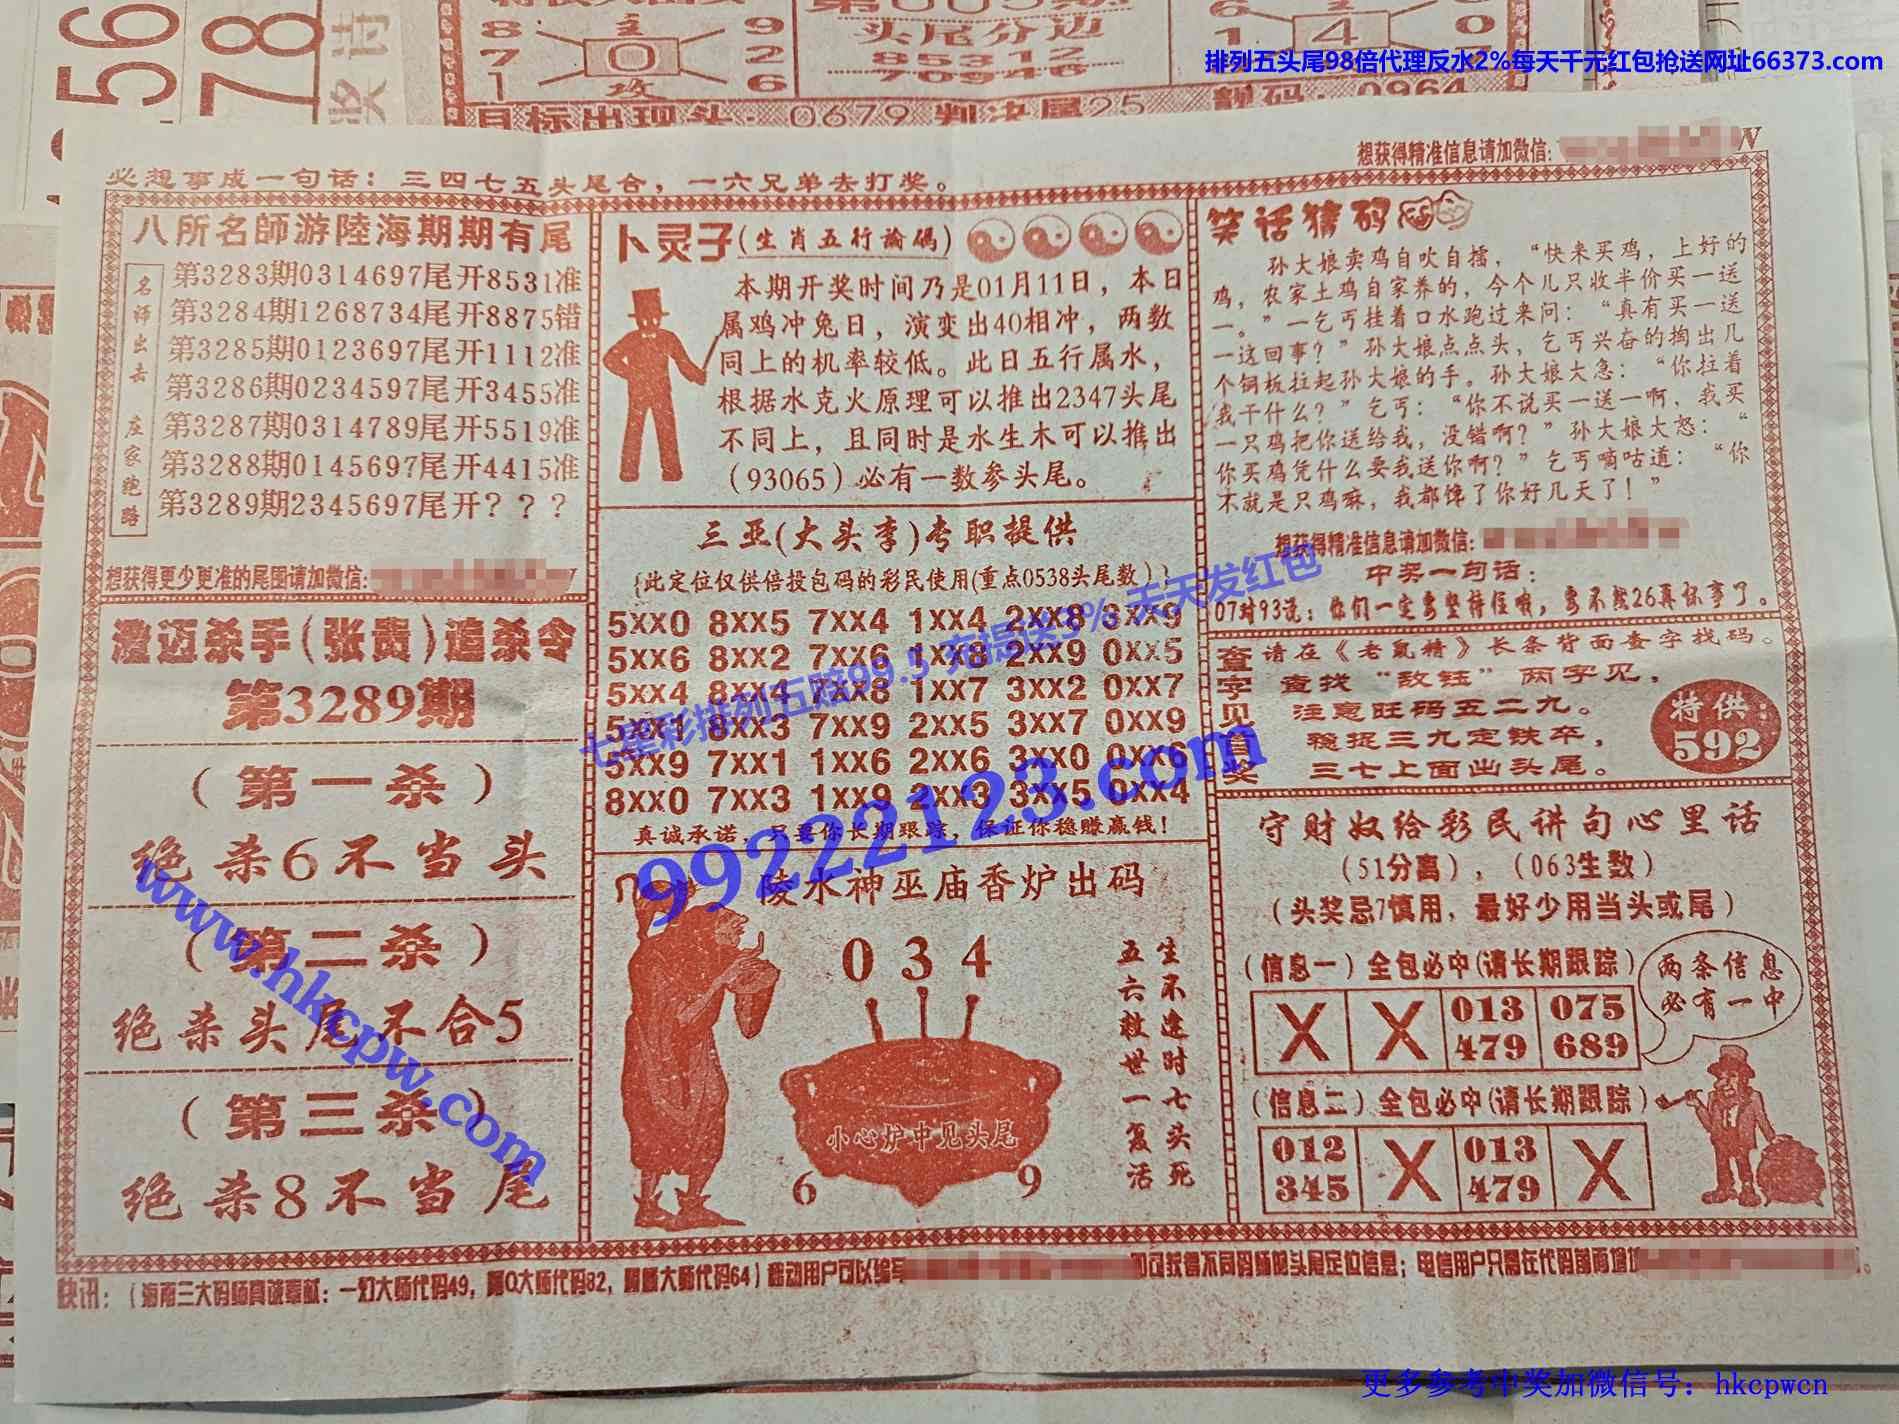 8 主 9
7 0 2
1 攻 6
头尾分边
85312
70946
6
1 4 0
目标出现头：0679 判决尾25 靓码：0964
排列五头尾98倍代理反水2%每天千元红包抢送网址66373.com
想获得精准信息请加微信:
必想事成一句话：三四七五头尾合，一六兄弟去打奖。
八所名師游陸海期期有尾
名师出击 庄家跑路
第3283期0314697尾开8531准
第3284期1268734尾开8875错
第3285期0123697尾开1112准
第3286期0234597尾开3455准
第3287期0314789尾开5519准
第3288期0145697尾开4415准
第3289期2345697尾开？？？
想获得更少更准的尾围请加微信:
澄迈杀手(张贵)追杀令
第3289期
（第一杀）
绝杀6不当头
（第二杀）
绝杀头尾不合5
（第三杀）
绝杀8不当尾
卜灵子(生肖五行論碼)
本期开奖时间乃是01月11日，本日
属鸡冲兔日，演变出40相冲，两数
同上的机率较低。此日五行属水，
根据水克火原理可以推出2347头尾
不同上，且同时是水生木可以推出
（93065）必有一数参头尾。
三亚(大头李)专职提供
{此定位仅供倍投包码的彩民使用(重点0538头尾数）}
5XX0 8XX5 7XX4 1XX4 2XX8 3XX9
5XX6 8XX2 7XX6 1XX8 2XX9 0XX5
5XX4 8XX4 7XX8 1XX7 3XX2 0XX7
5XX1 8XX3 7XX9 2XX5 3XX7 0XX9
5XX9 7XX1 1XX6 2XX6 3XX0 0XX6
8XX0 7XX3 1XX9 2XX3 3XX5 0XX4
真诚承诺，只要你长期跟踪，保证你稳赚赢钱！
陵水神巫庙香炉出码
034
小心炉中见头尾
6 9
生不逢时七头死
五六救世一复活
笑话猜码
孙大娘卖鸡自吹自擂，“快来买鸡，上好的
鸡，农家土鸡自家养的，今个儿只收半价买一送
一。”一乞丐挂着口水跑过来问：“真有买一送
一这回事？”孙大娘点点头，乞丐兴奋的掏出几
个钢板拉起孙大娘的手。孙大娘大急：“你拉着
我干什么？”乞丐：“你不说买一送一啊，我买
一只鸡把你送给我，没错啊？”孙大娘大怒：“
你买鸡凭什么要我送你啊？”乞丐嘀咕道：“你
不就是只鸡嘛，我都馋了你好几天了！”
想获得精准信息请加微信:
中奖一句话：
07对93说：你们一定要坚持住哦，要不然26再坏事了。
查字见百奖
请在《老鼠精》长条背面查字找码。
查找“敌钰”两字见，
注意旺码五二九。
稳捉三九定铁卒，
三七上面出头尾。
特供：
592
守财奴给彩民讲句心里话
（51分离），（063生数）
（头奖忌7慎用，最好少用当头或尾）
（信息一）全包必中(请长期跟踪）
X X 013 075
479 689
两条信息
必有一中
（信息二）全包必中(请长期跟踪）
012 X 013 X
345 479
快讯：（海南三大码师真诚奉献：一幻大师代码49，
即可获得不同码师的头尾定位信息；电信用户只需在代码前面增加
七星彩排列五赔99.5 充提送3% 天天发红包
99222123.com
www.hkcpw.com
更多参考中奖加微信号：hkcpwcn